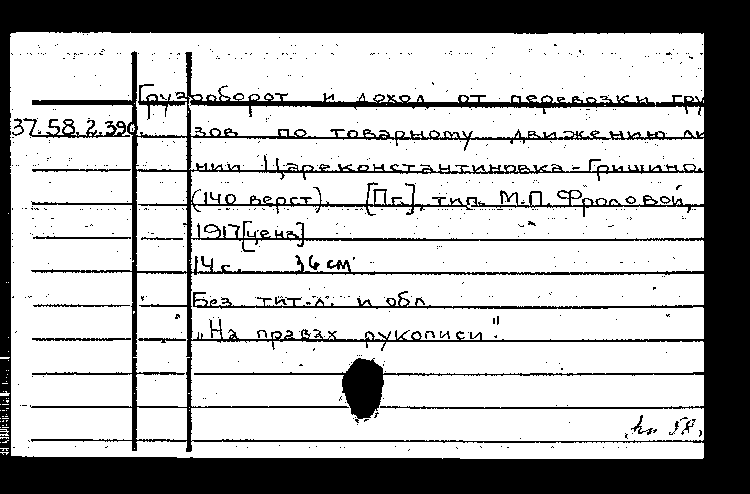 Грузооборот и доход от перевозки гру
37.58.2.390. зов по товарному движению ли
нии Цареконстантиновка-Гришино.
(140 верст). [Пг.], тип. М.П. Фроловой,
1917 [цена]
14 с. 36 см
Без тит. л. и обл.
„На правах рукописи".
58,